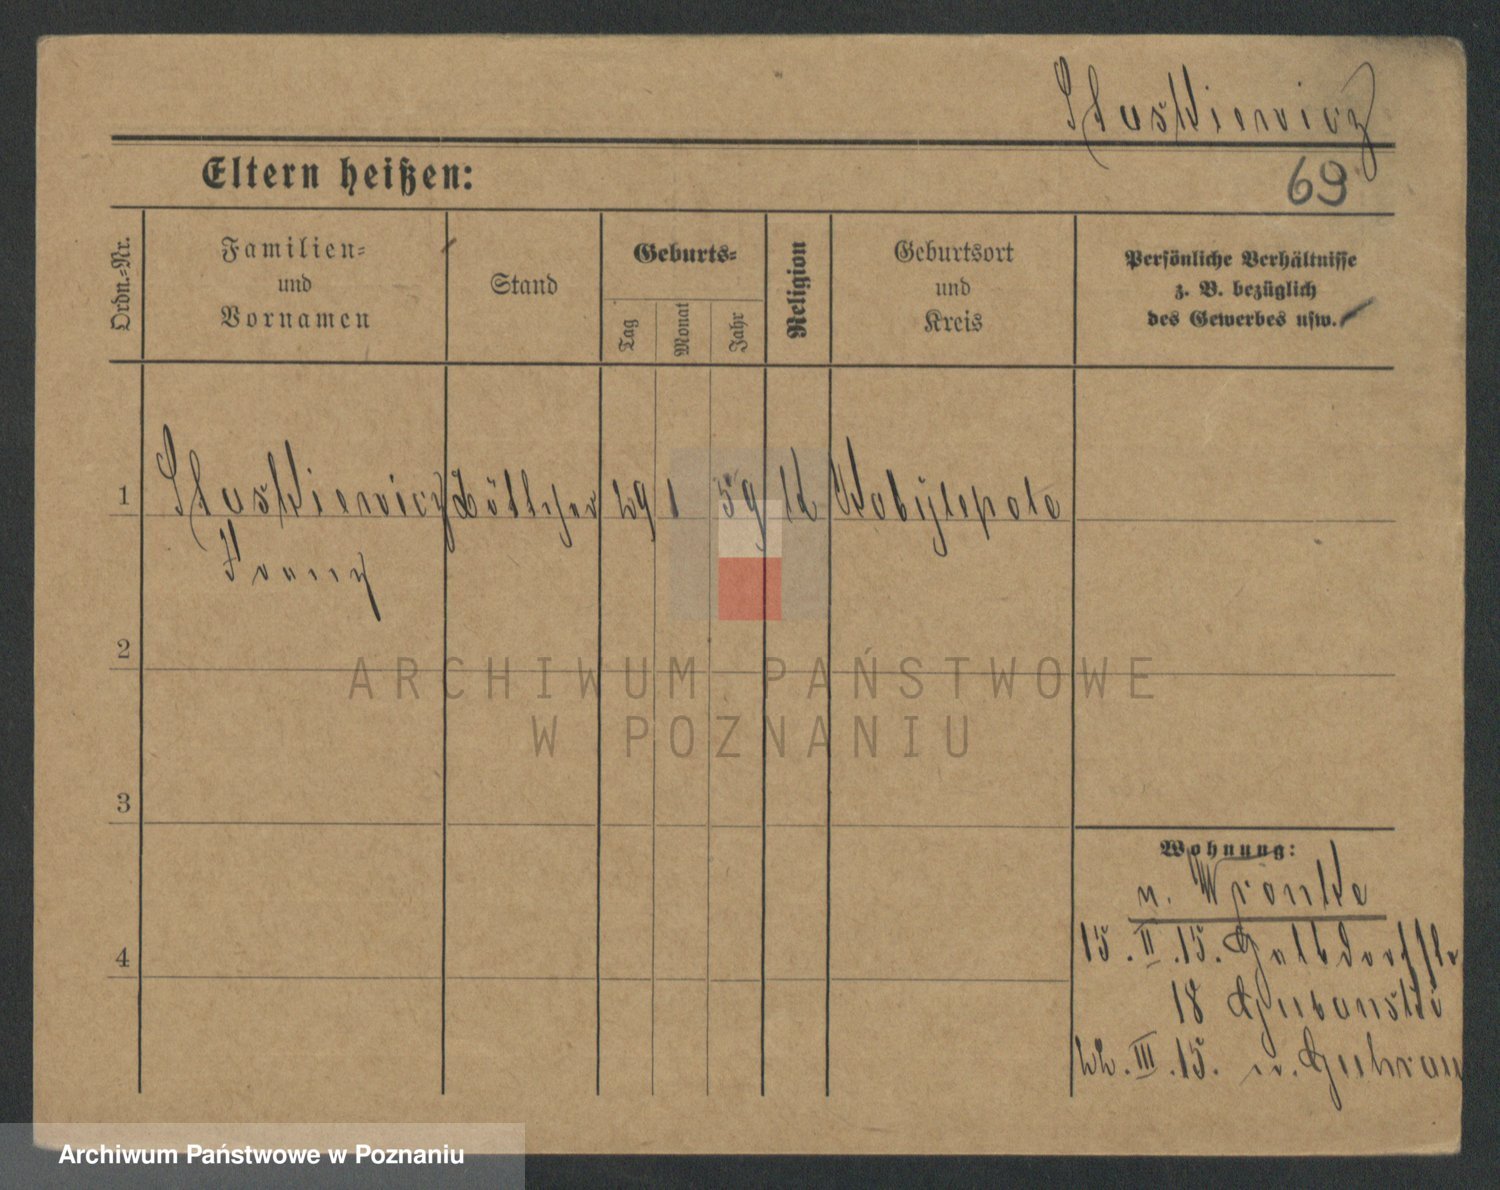 Stuśkiewicz
69
Eltern heißen:
Ordn.-Nr.
Familien-
und
Vornamen
Stand
Geburts-
Tag
Monat
Jahr
Religion
Geburtsort
und
Kreis
Persönliche Verhältnisse
z. B. bezüglich
des Gewerbes usw.
1 Stuśkiewicz Böttcher 29 1 59 kt Kobylepole
Franz
2
3
4
ARCHIWUM PAŃSTWOWE
W POZNANIU
Wohnung:
n. Wronke
15. II. 15.
18 Grubanski
22. III. 15. n. Guhrau
Archiwum Państwowe w Poznaniu